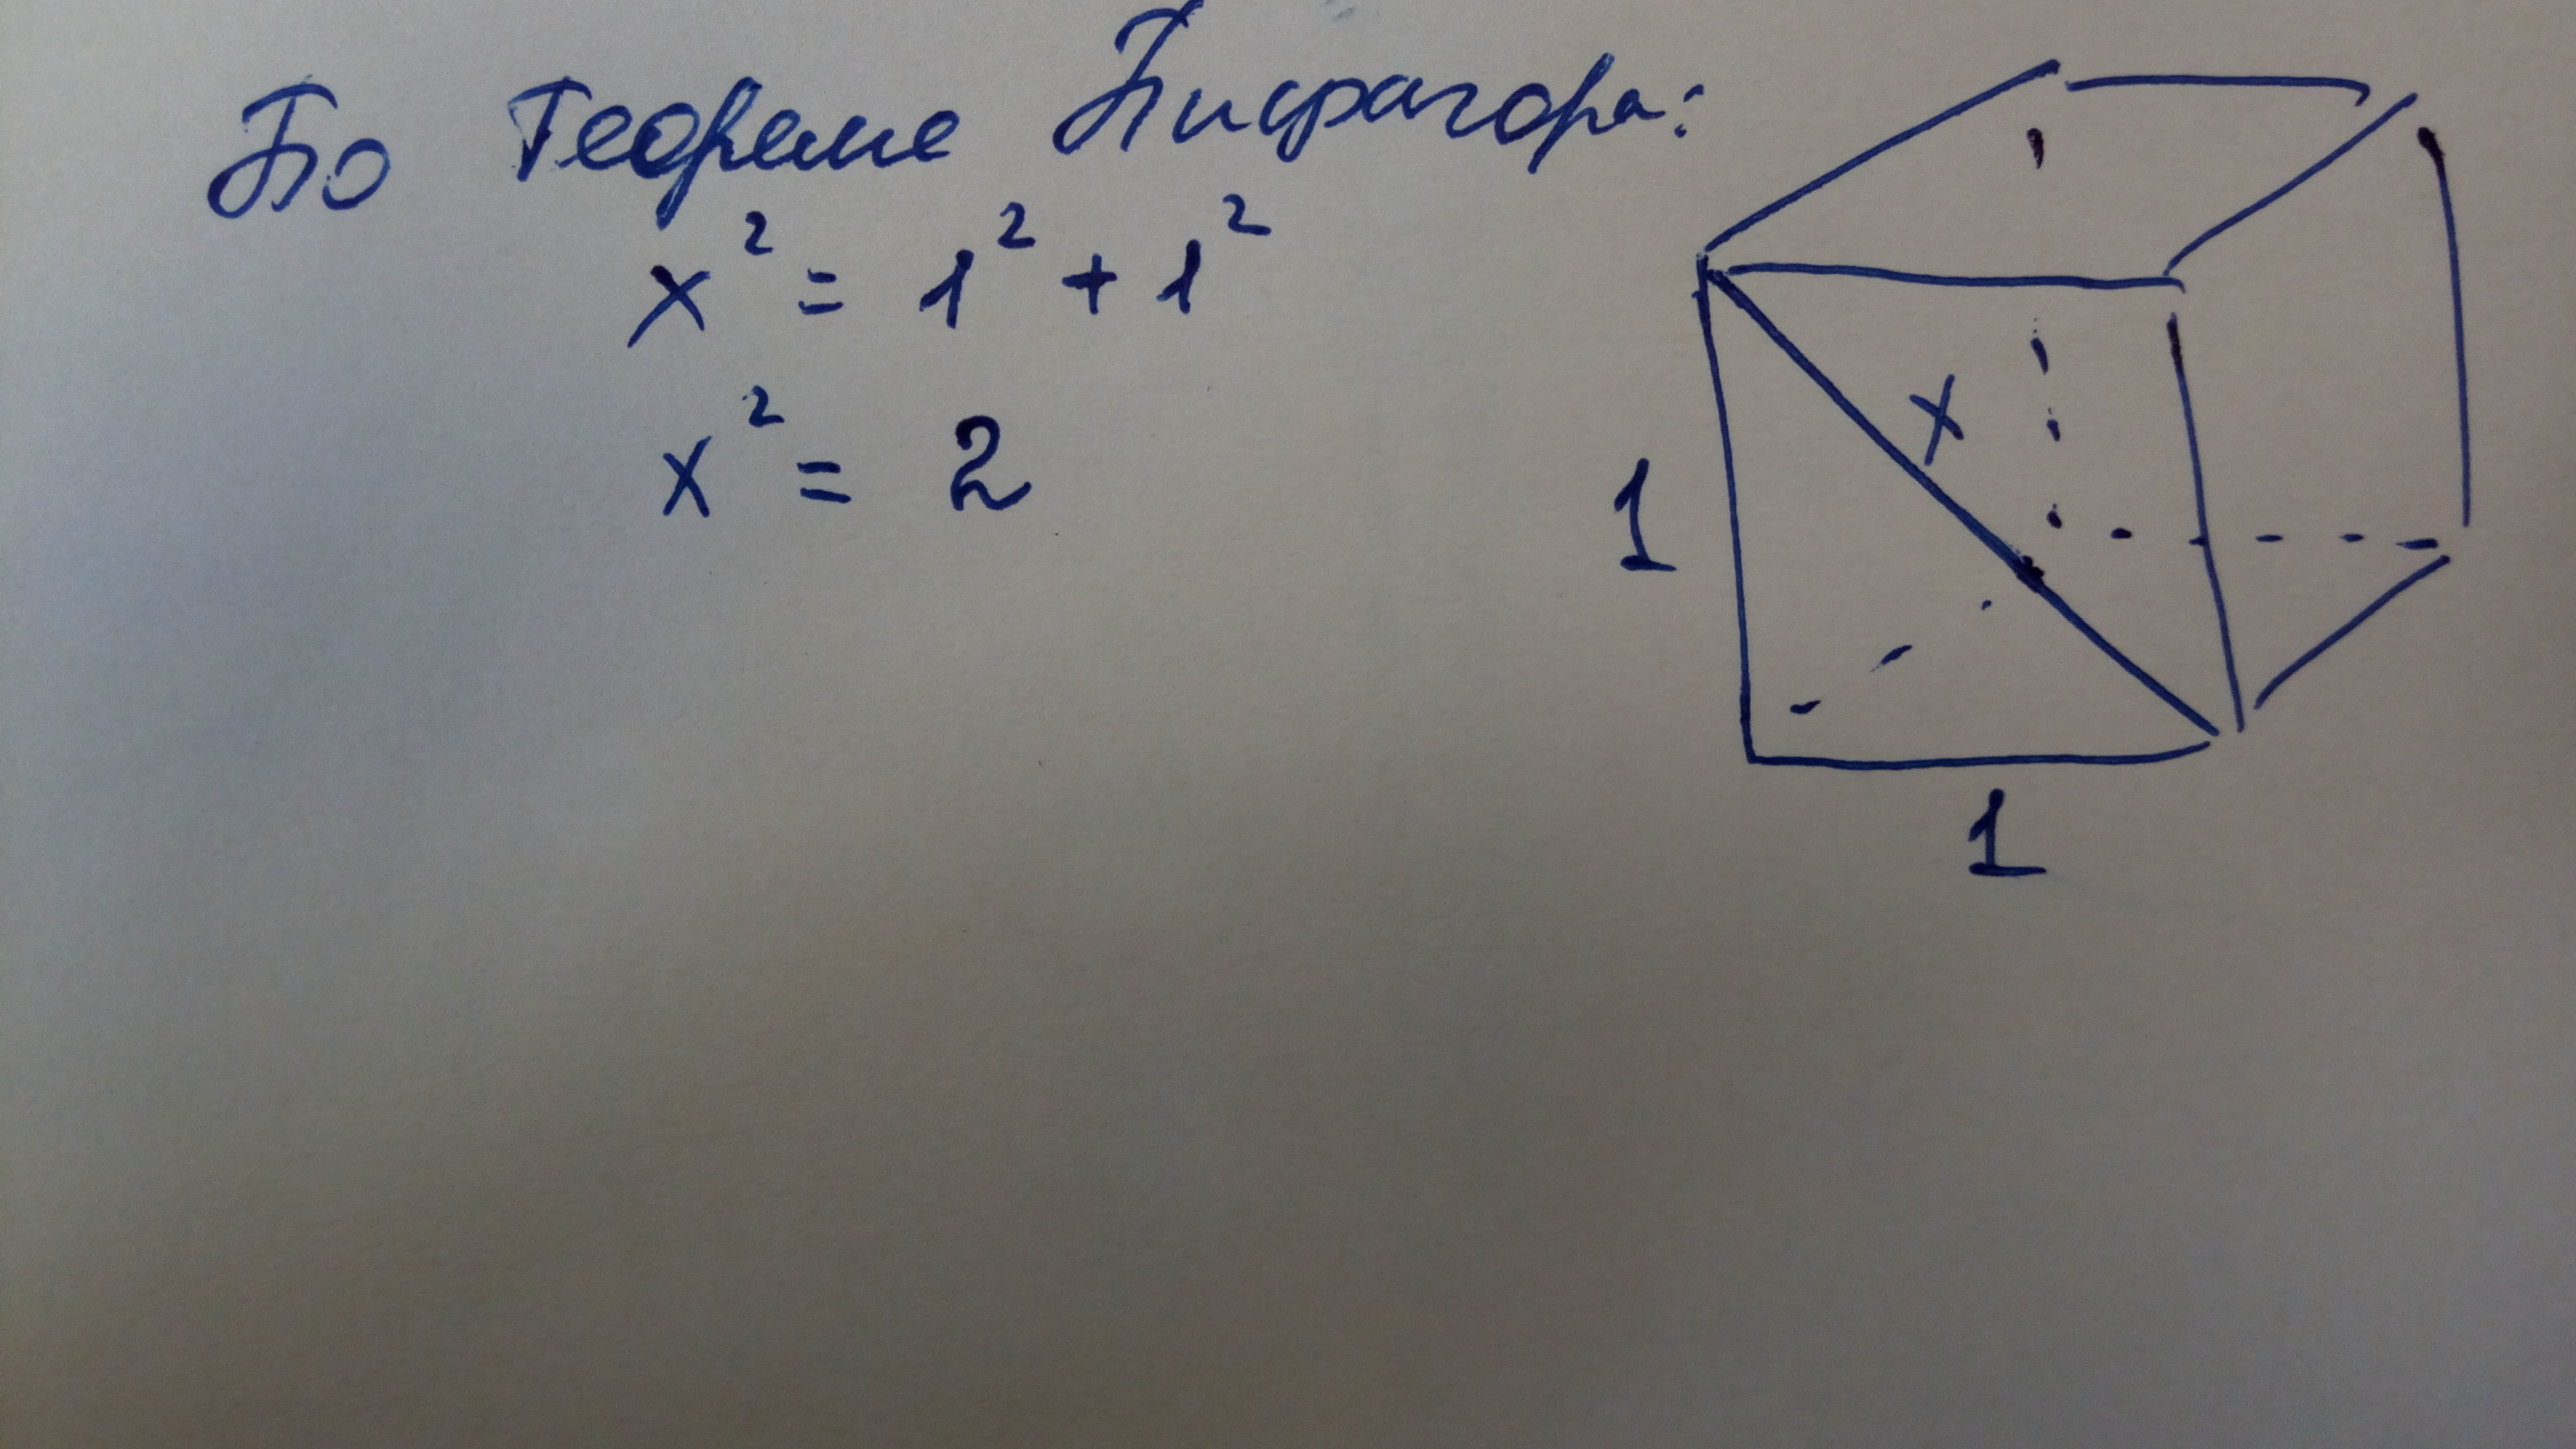 По Теореме Пифагора:
x² = 1² + 1²
x² = 2
x
1
1